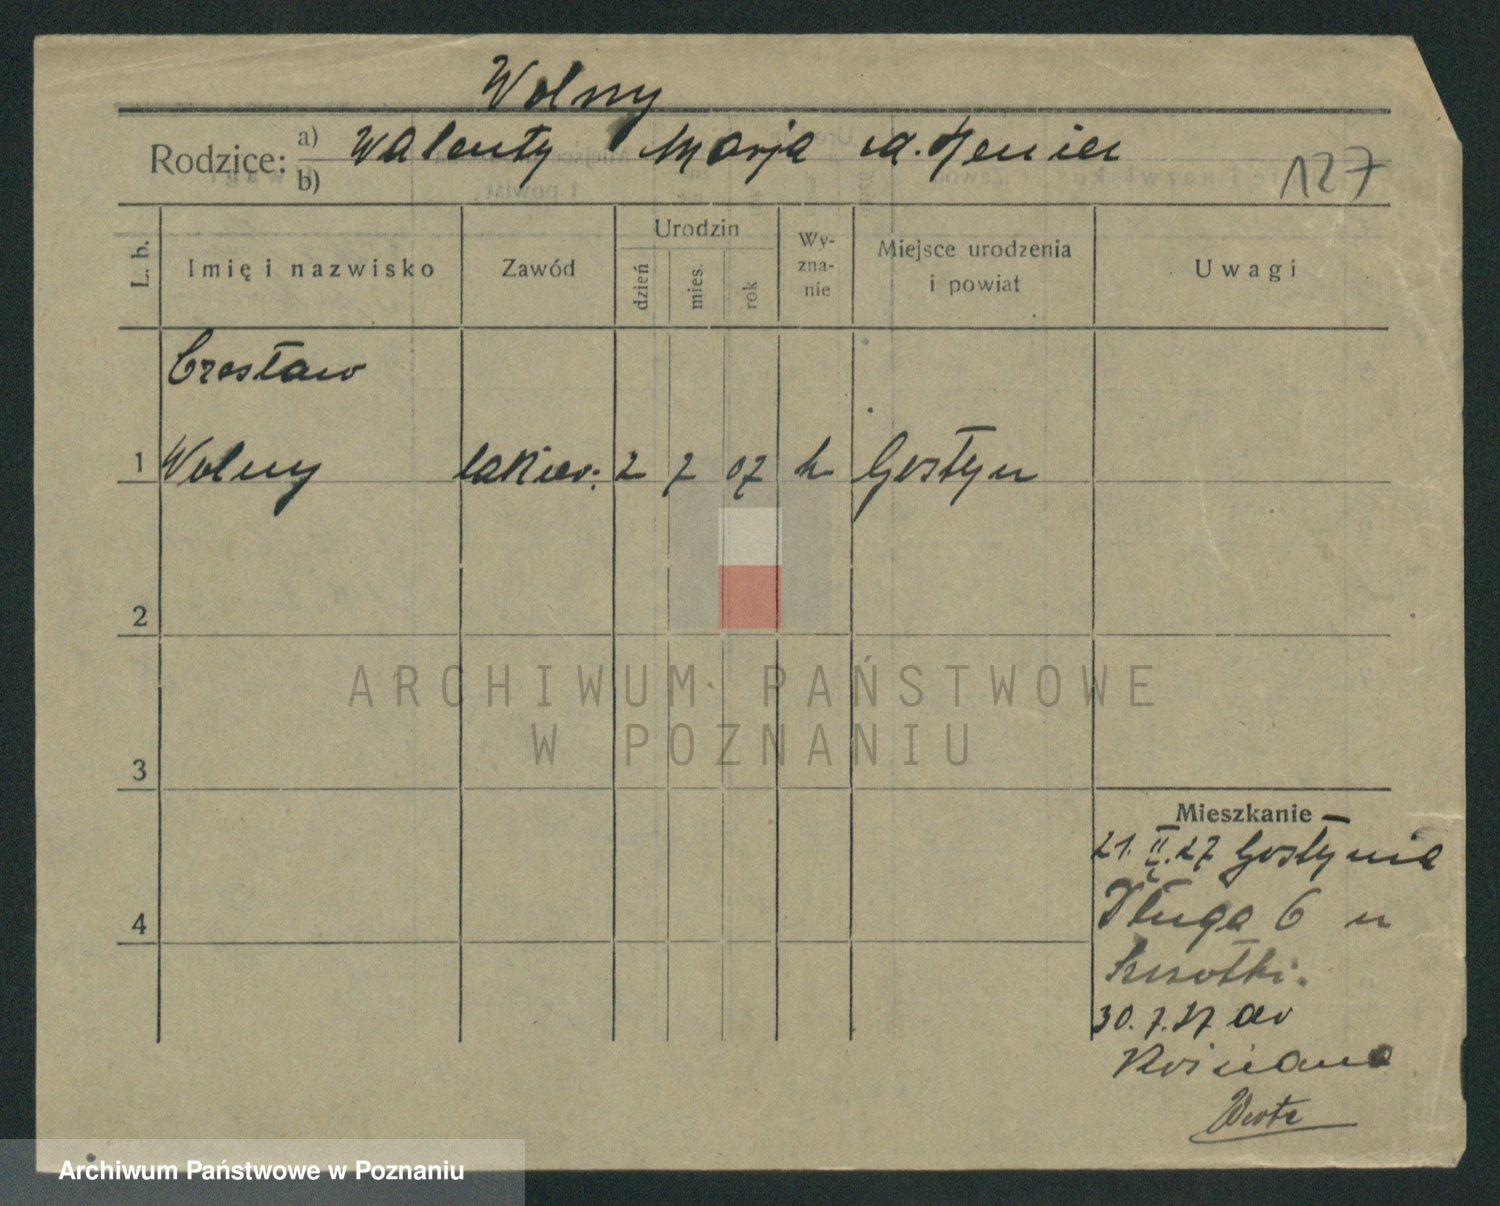 Wolny
Rodzice: a) Walenty Marja
b)
127
L. b.
Imię i nazwisko
Zawód
Urodzin
dzień
mies.
rok
Wy-
zna-
nie
Miejsce urodzenia
i powiat
Uwagi
Czesław
1 Wolny lakier. 2 7 07 k Gostyn
2
ARCHIWUM PAŃSTWOWE
W POZNANIU
3
Mieszkanie
21. II. 27 Gostynia
4
Długa 6 u
30. 7. 27 do
Archiwum Państwowe w Poznaniu